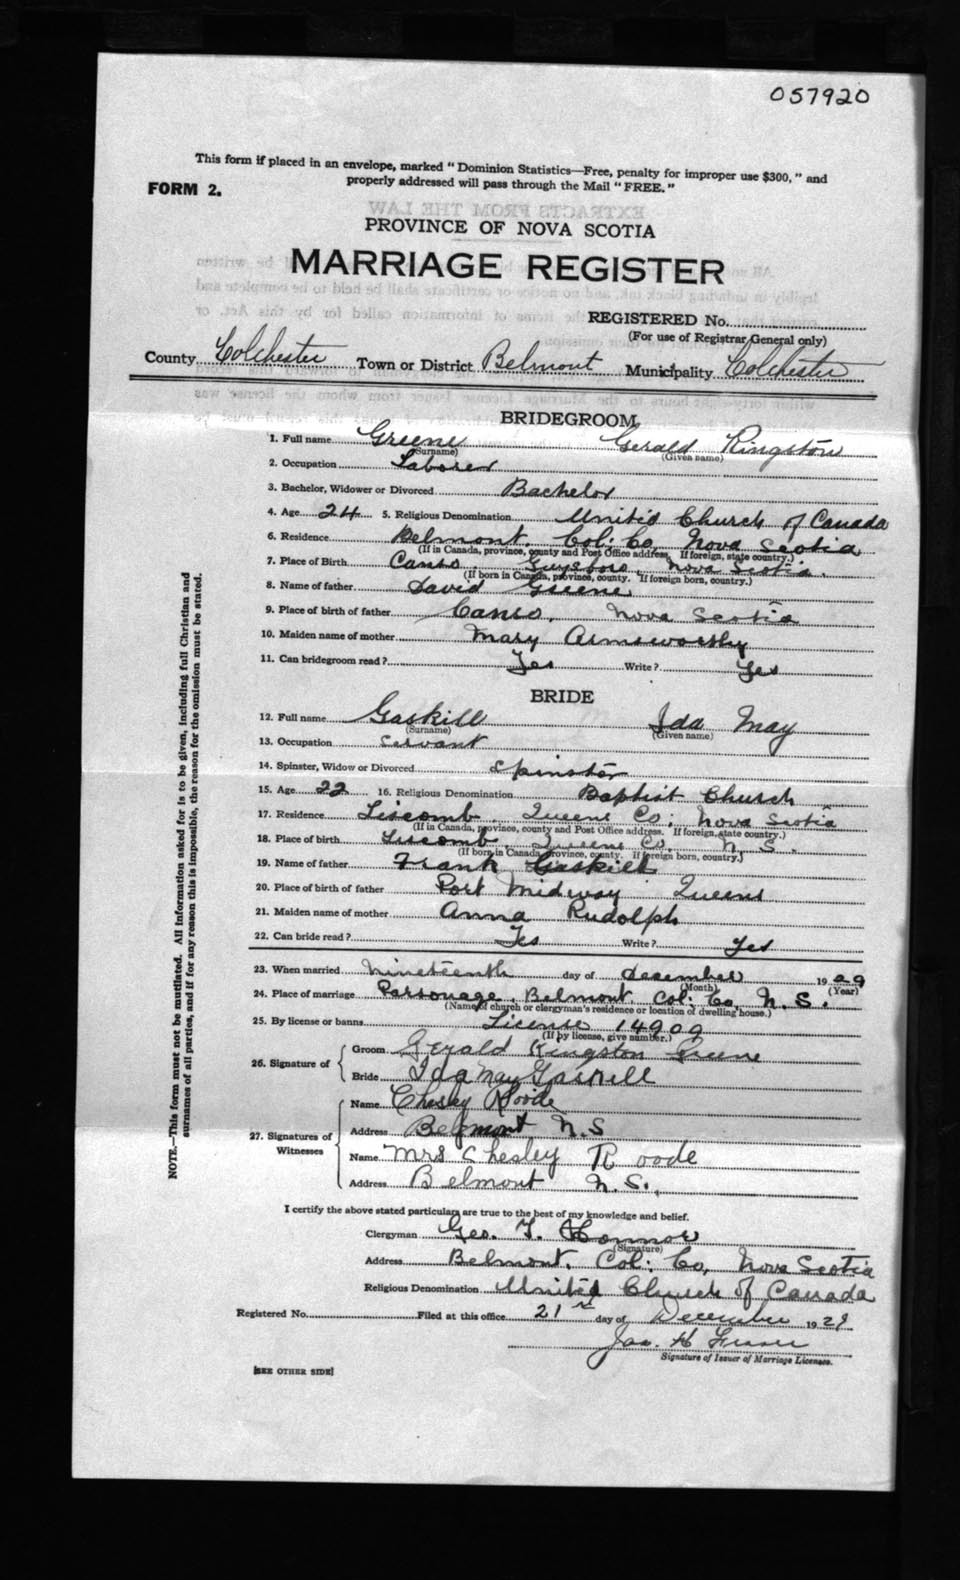 057920
This form if placed in an envelope, marked "Dominion Statistics—Free, penalty for improper use $300," and
FORM 2. properly addressed will pass through the Mail "FREE."
EXTRACTS FROM THE LAW
PROVINCE OF NOVA SCOTIA
MARRIAGE REGISTER
REGISTERED No.
(For use of Registrar General only)
County Colchester Town or District Belmont Municipality Colchester
BRIDEGROOM
1. Full name Greene Gerald Kingston
(Surname) (Given name)
2. Occupation Laborer
3. Bachelor, Widower or Divorced Bachelor
4. Age 24 5. Religious Denomination United Church of Canada
6. Residence Belmont, Col: Co, Nova Scotia
(If in Canada, province, county and Post Office address. If foreign, state country.)
7. Place of Birth Canso, Guysboro, Nova Scotia.
(If born in Canada, province, county. If foreign born, country.)
8. Name of father David Greene
9. Place of birth of father Canso, Nova Scotia
10. Maiden name of mother Mary Armsworthy
11. Can bridegroom read? Yes Write? Yes
BRIDE
12. Full name Gaskill Ida May
(Surname) (Given name)
13. Occupation Servant
14. Spinster, Widow or Divorced Spinster
15. Age 22 16. Religious Denomination Baptist Church
17. Residence Liscomb, Queens Co; Nova Scotia
(If in Canada, province, county and Post Office address. If foreign, state country.)
18. Place of birth Liscomb, Queens Co, N. S.
(If born in Canada province, county. If foreign born, country.)
19. Name of father Frank Gaskill
20. Place of birth of father Port Midway Queens
21. Maiden name of mother Anna Rudolph
22. Can bride read? Yes Write? Yes
23. When married Nineteenth day of December 1929
(Month) (Year)
24. Place of marriage Parsonage, Belmont, Col: Co, N. S.
(Name of church or clergyman's residence or location of dwelling house.)
25. By license or banns License 14909
(If by license, give number.)
26. Signature of Groom Gerald Kingston Greene
Bride Ida May Gaskill
27. Signatures of Witnesses
Name Chesley Roode
Address Belmont N.S
Name Mrs Chesley Roode
Address Belmont N.S.
I certify the above stated particulars are true to the best of my knowledge and belief.
Clergyman Geo. T. O'Connor
(Signature)
Address Belmont, Col: Co, Nova Scotia
Religious Denomination United Church of Canada
Registered No. Filed at this office 21st day of December 1929
Jas. H
Signature of Issuer of Marriage Licenses.
[SEE OTHER SIDE]
NOTE.—This form must not be mutilated. All information asked for is to be given, including full Christian and
surnames of all parties, and if for any reason this is impossible, the reason for the omission must be stated.